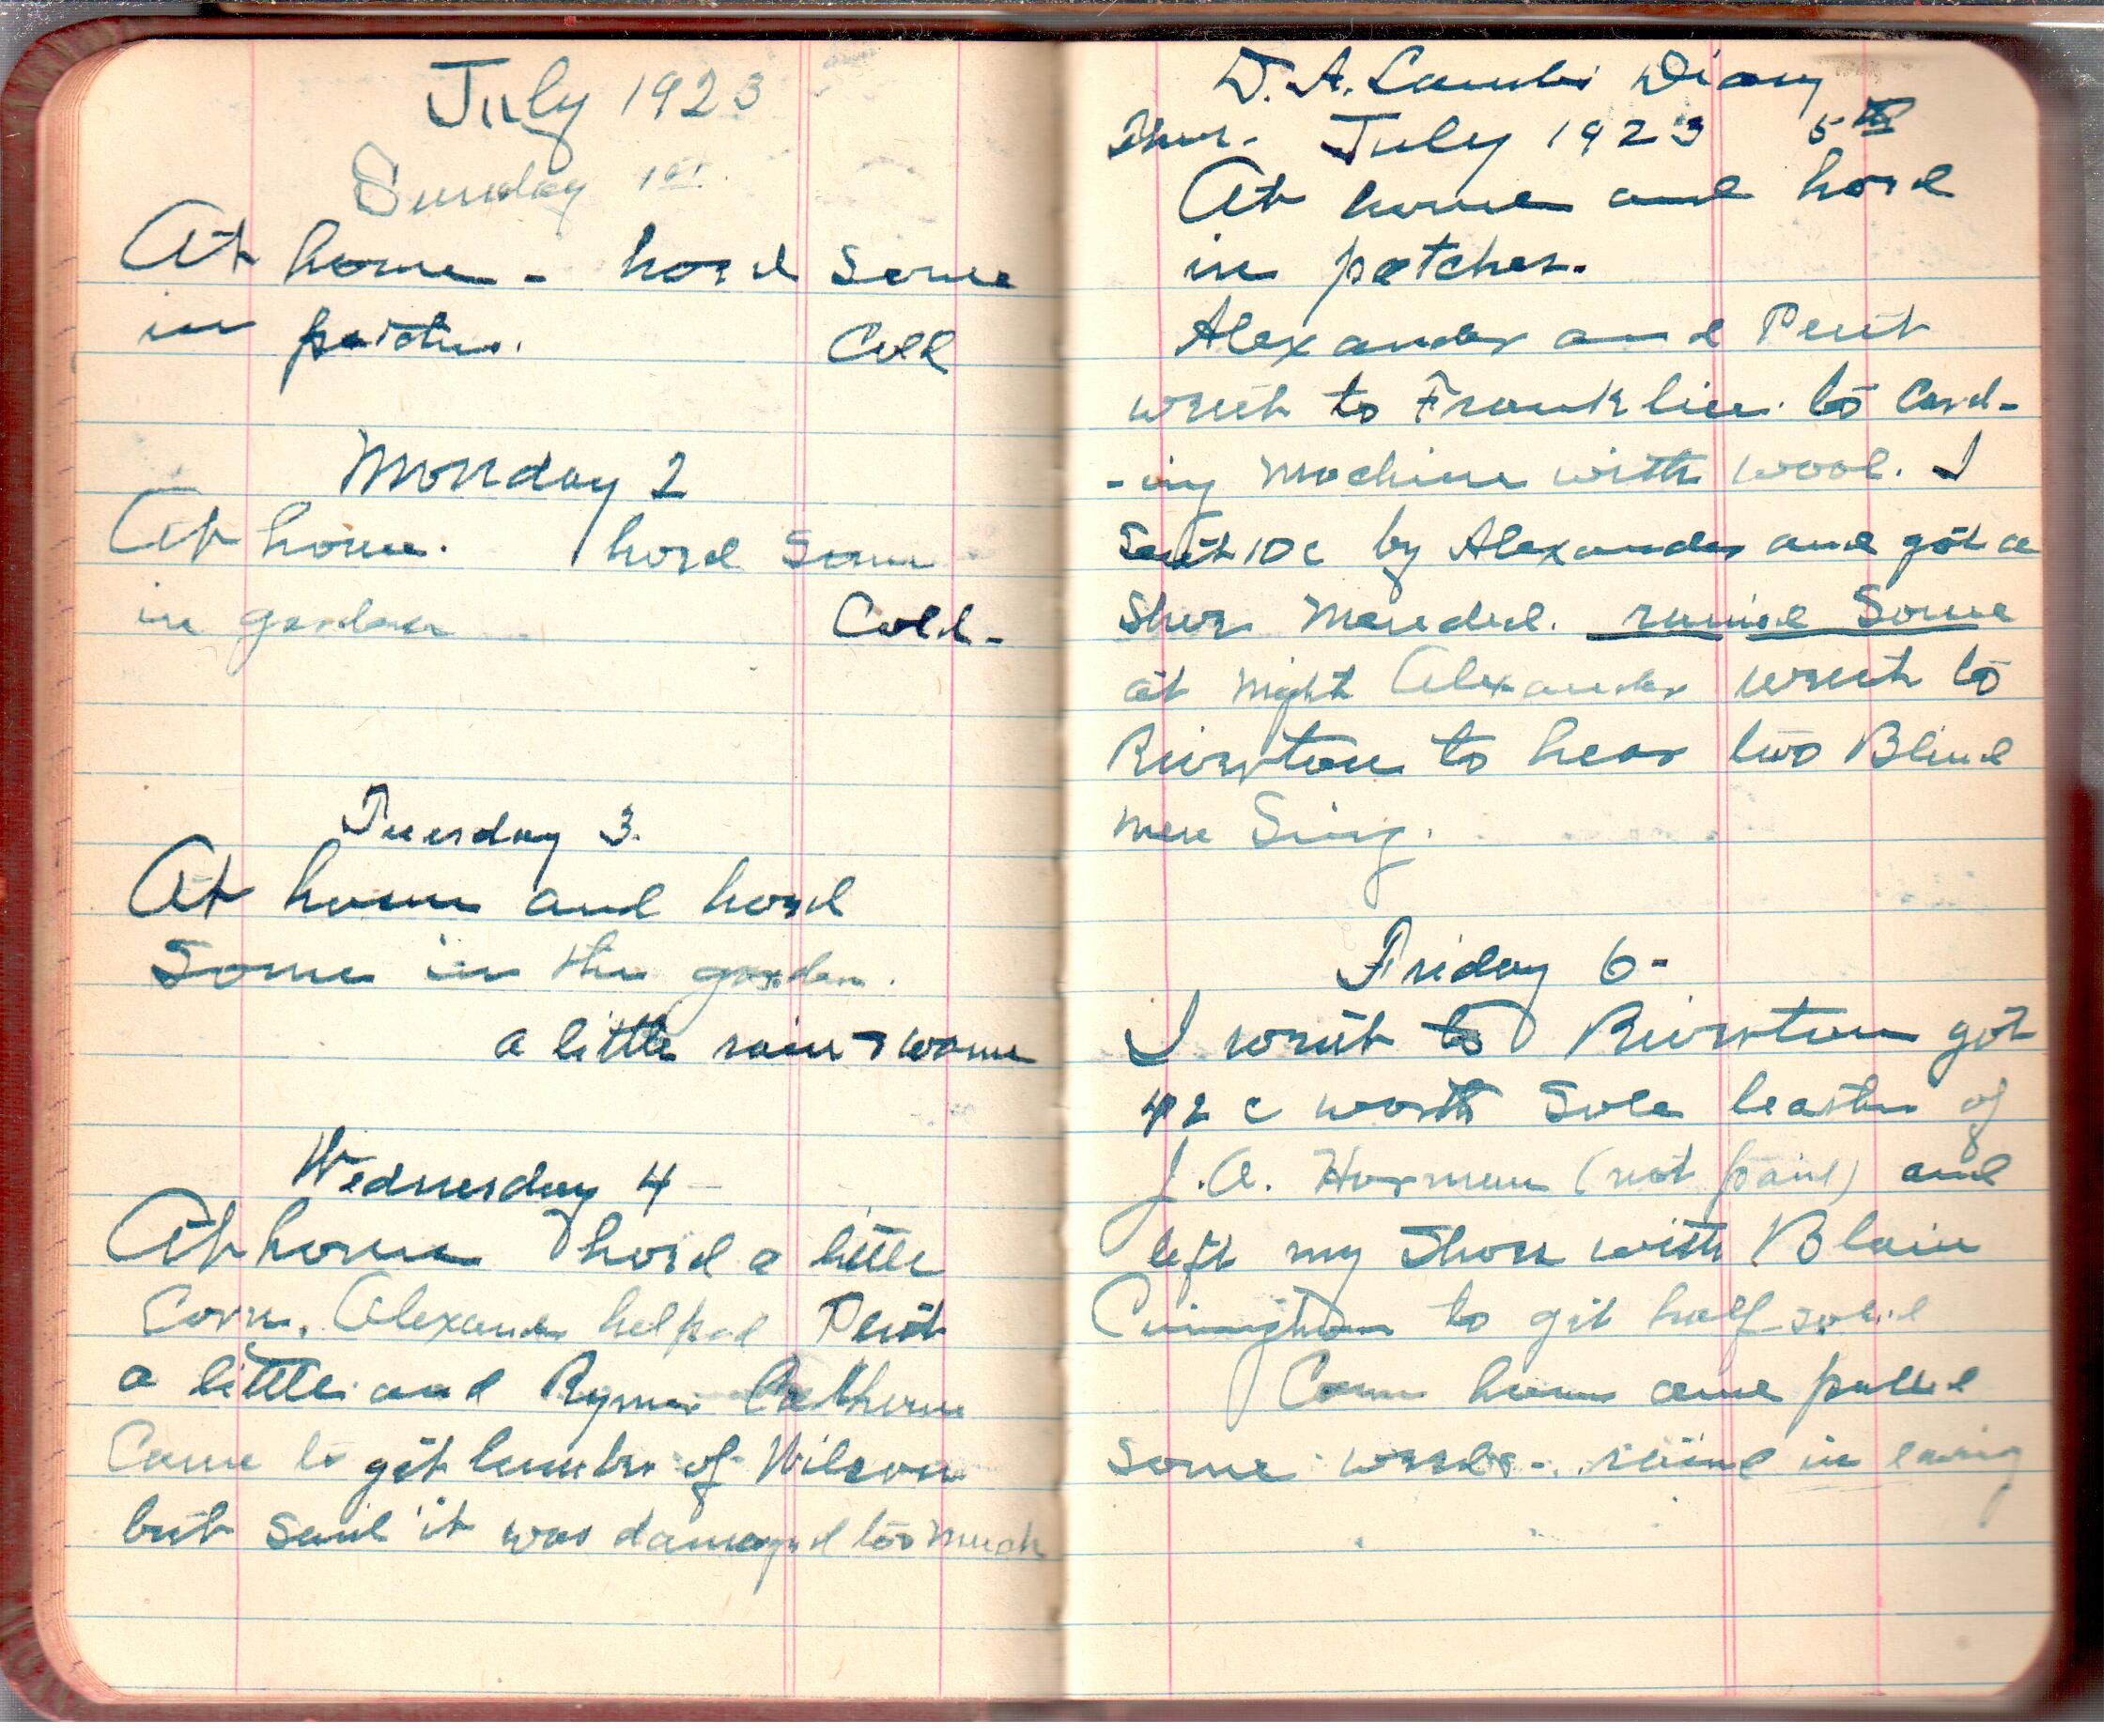 July 1923
Sunday 1st.
At home - hoed some
in patches. Cold
Monday 2
At home. hoed some
in garden Cold-
Tuesday 3.
At home and hoed
Some in the garden.
a little rain - warm
Wednesday 4
At home hoed a little
Corn. Alexander helped
a little and Rymer Catherine
Came to get lumber of Wilson
but said it was damaged too much
D. A. Lambs Diary
Thur. July 1923 5th
At home and hoed
in patches.
Alexander and
went to Franklin to Card-
-ing Machine with wool. I
Sent 10c by Alexander and got a
Shoe Mended. rained Some
at night Alexander went to
Riverton to hear two Blind
men Sing.
Friday 6-
I went to Riverton got
42 c worth Sole leather of
J. A. Harman (not paid) and
left my Shoes with Blain
to git half soled
Came home and pulled
some weeds - rained in eaving